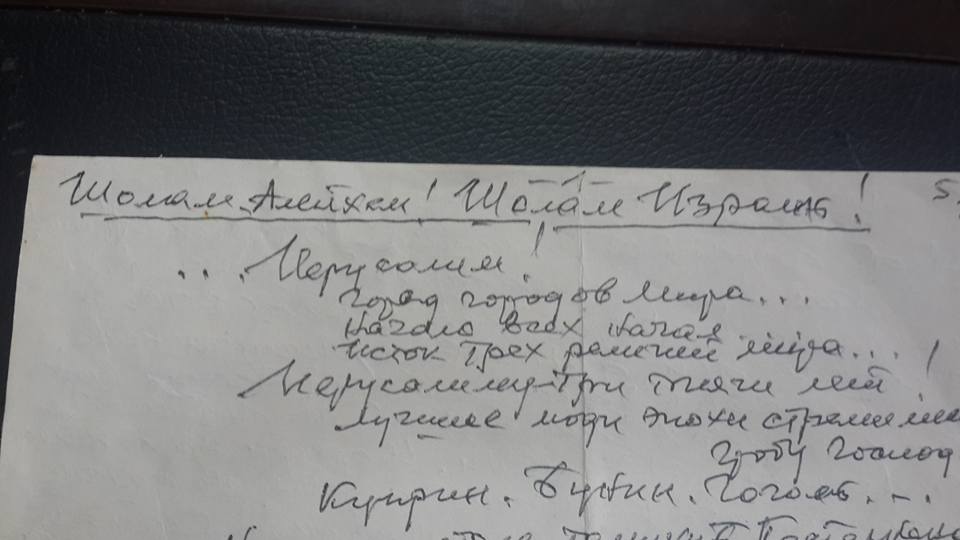 Шолам Алейхем! Шолам Израиль!
-1-
5.
... Иерусалим!
город городов мира...
начало всех начал
исток трех религий мира...
Иерусалиму - три тысячи лет!
лучшие люди эпохи стремились
гробу Господ
Куприн. Бунин. Гоголь...